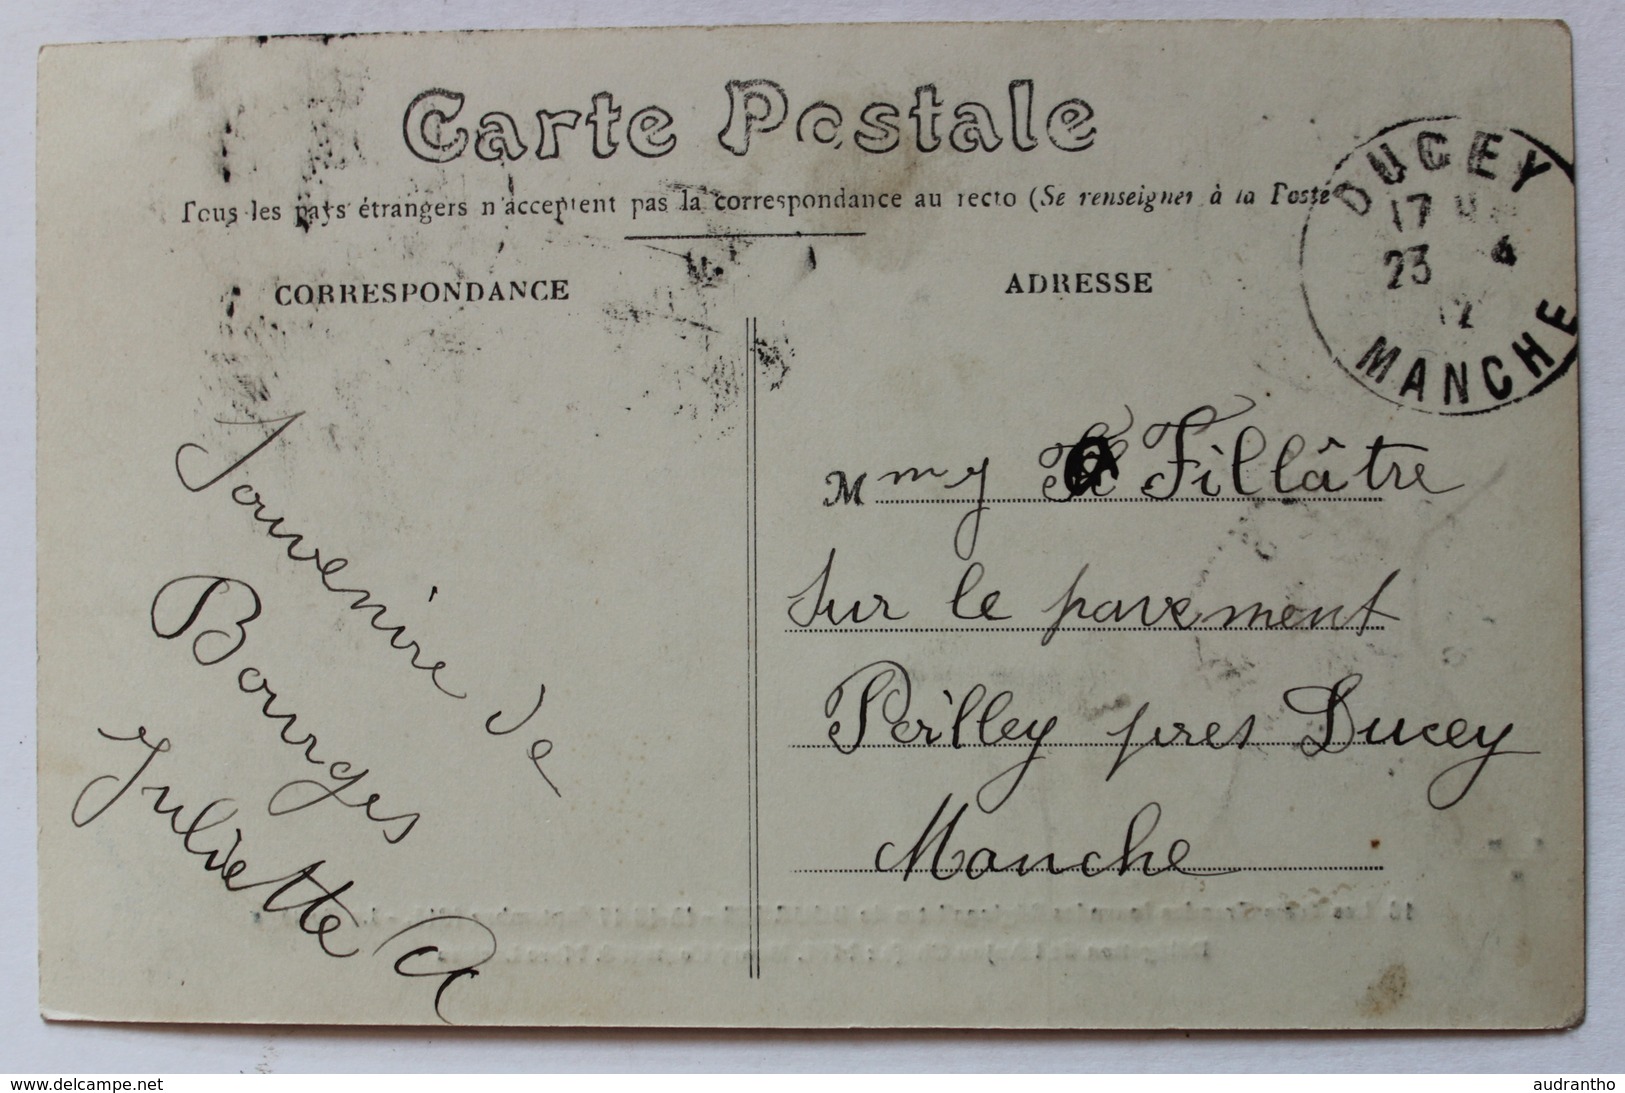 Carte Postale
Tous les pays étrangers n'acceptent pas la correspondance au recto (Se renseigner à la Poste
CORRESPONDANCE
ADRESSE
DUCEY
17
23 4
12
MANCHE
Souvenire de
Bourges
Juliette
M Fillâtre
Sur le pavement
Poilley pres Ducey
Manche
www.delcampe.net
audrantho